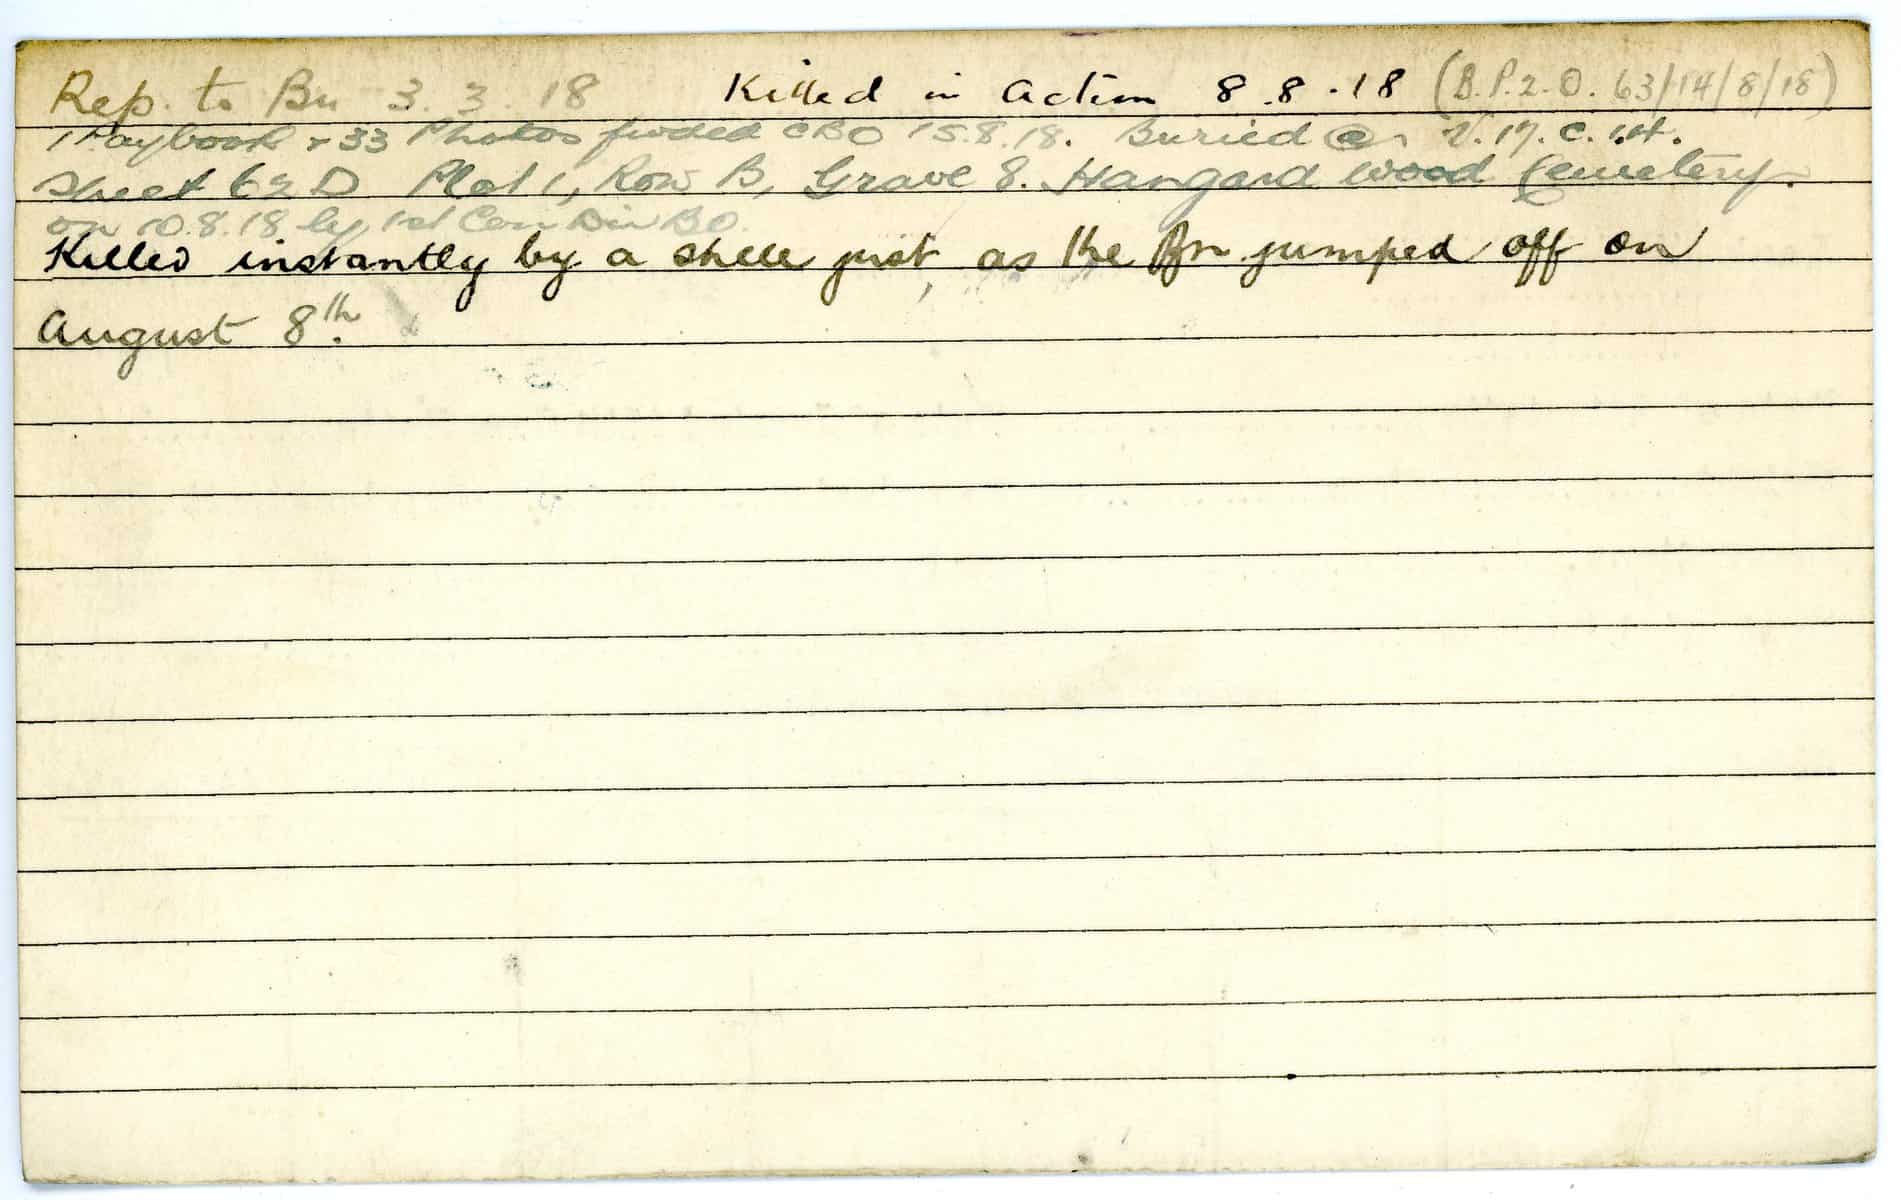 Rep. to Bn 3.3.18 Killed in Action 8.8.18 (B.P.2.O. 63/14/8/18)
1 Paybook + 33 Photos fwded CBO 15.8.18. Buried @ V.17.c.1.4.
Sheet 62D Plot 1, Row B, Grave 8. Hangard Wood Cemetery.
on 10.8.18 by 1st Can Div BO.
Killed instantly by a shell just as the Bn jumped off on
August 8th.